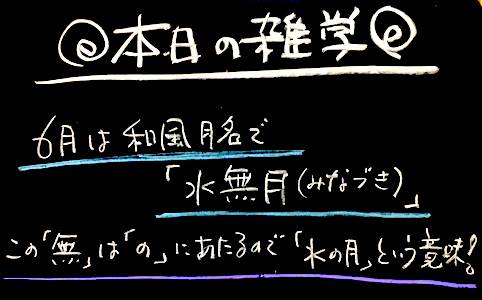 本日の雑学
6月は和風月名で
「水無月(みなづき)」
この「無」は「の」にあたるので「水の月」という意味!